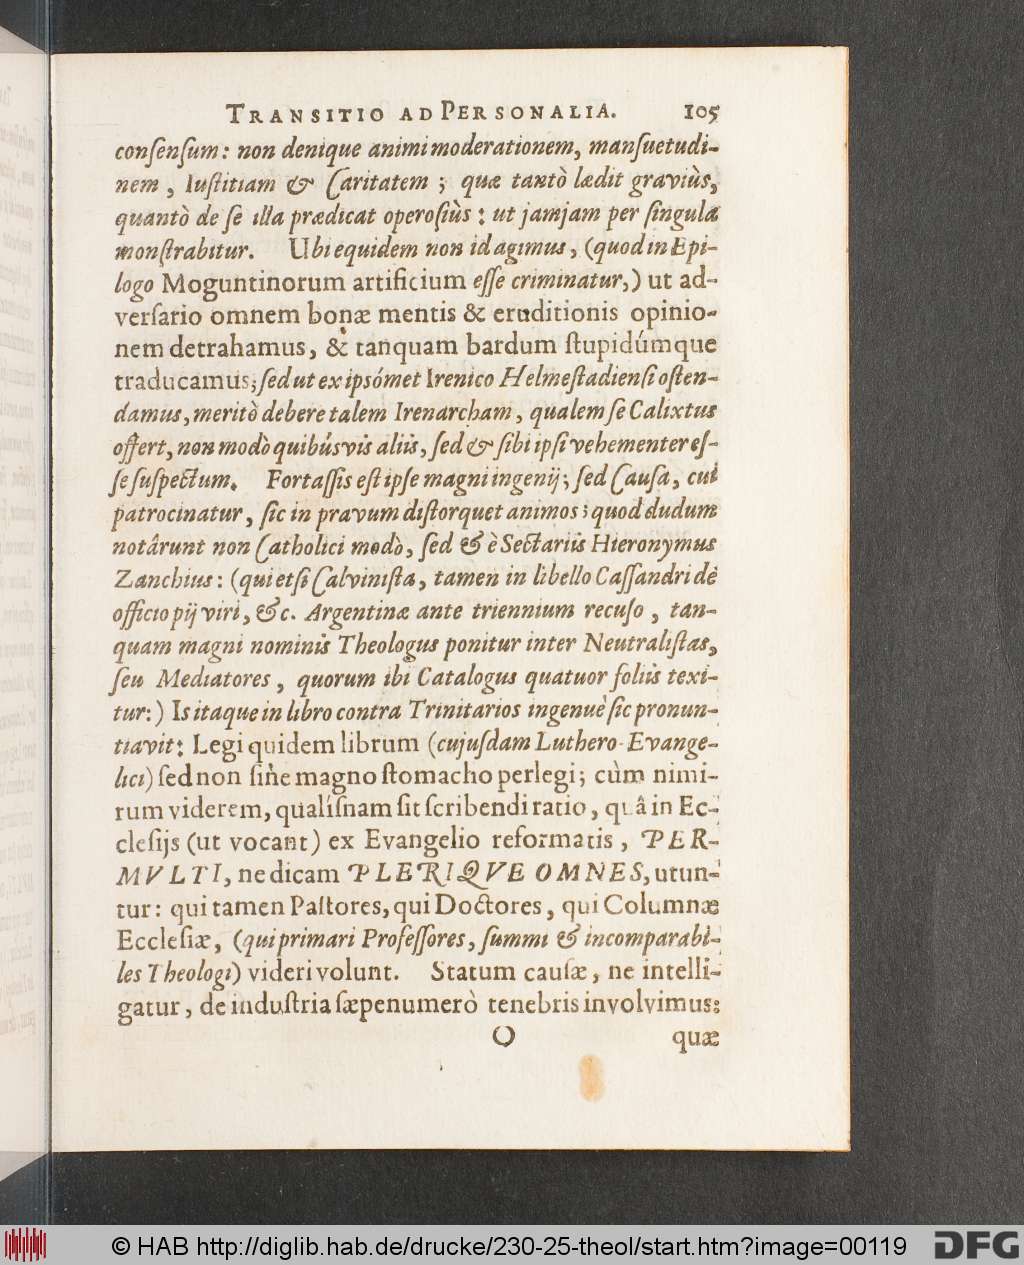 TRANSITIO AD PERSONALIA. 105
conſenſum: non denique animi moderationem, manſuetudi-
nem, Iuſtitiam & Caritatem; quæ tantò lædit graviùs,
quantò de ſe illa prædicat operoſiùs: ut jamjam per ſingula
monſtrabitur. Ubi equidem non id agimus, (quod in Epi-
logo Moguntinorum artificium eſſe criminatur,) ut ad-
verſario omnem bonæ mentis & eruditionis opinio-
nem detrahamus, & tanquam bardum ſtupidúmque
traducamus; ſed ut ex ipſómet Irenico Helmeſtadienſi oſten-
damus, meritò debere talem Irenarcham, qualem ſe Calixtus
offert, non modò quibúsvis aliis, ſed & ſibi ipſi vehementer eſ-
ſe ſuſpectum. Fortaſſis eſt ipſe magni ingenij; ſed Cauſa, cui
patrocinatur, ſic in pravum diſtorquet animos; quod dudum
notârunt non Catholici modò, ſed & è Sectariis Hieronymus
Zanchius: (qui etſi Calviniſta, tamen in libello Caſſandri de
officio pij viri, &c. Argentinæ ante triennium recuſo, tan-
quam magni nominis Theologus ponitur inter Neutraliſtas,
ſeu Mediatores, quorum ibi Catalogus quatuor foliis texi-
tur:) Is itaque in libro contra Trinitarios ingenuè ſic pronun-
tiavit: Legi quidem librum (cujuſdam Luthero-Evange-
lici) ſed non ſine magno ſtomacho perlegi; cùm nimi-
rum viderem, qualíſnam ſit ſcribendi ratio, quâ in Ec-
cleſijs (ut vocant) ex Evangelio reformatis, PER-
MVLTI, ne dicam PLERIQVE OMNES, utun-
tur: qui tamen Paſtores, qui Doctores, qui Columnæ
Eccleſiæ, (qui primari Profeſſores, ſummi & incomparabi-
les Theologi) videri volunt. Statum cauſæ, ne intelli-
gatur, de induſtria ſæpenumerò tenebris involvimus:
O quæ
© HAB http://diglib.hab.de/drucke/230-25-theol/start.htm?image=00119 DFG